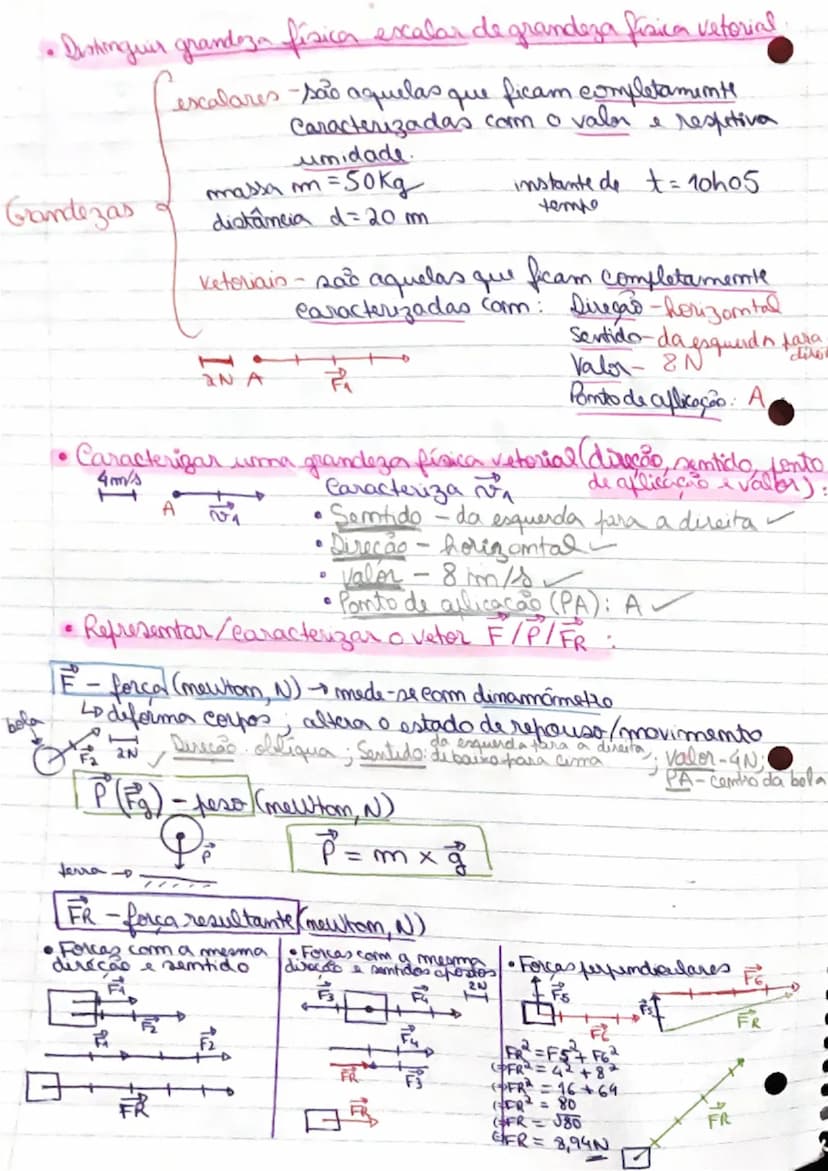 • Distinguir grandeza física escalar de grandeza física vetorial:
escalares - são aquelas que ficam completamente
caracterizadas com o valor e respetiva
unidade.
massa m = 50Kg instante de tempo t = 10h05
distância d = 20 m
Grandezas
vetoriais - são aquelas que ficam completamente
caracterizadas com: Direção - horizontal
Sentido - da esquerda para
direita
Valor - 8N
Ponto de aplicação: A
2N A F₁
• Caracterizar uma grandeza física vetorial (direção, sentido, ponto
de aplicação e valor):
4m/s
A v₁
Caracteriza v₁
• Sentido - da esquerda para a direita ✓
• Direção - horizontal ✓
• Valor - 8 m/s ✓
• Ponto de aplicação (PA): A ✓
• Representar/caracterizar o vetor F / P / FR :
F - força (newton, N) → mede-se com dinamómetro
↳ deforma corpos ; altera o estado de repouso/movimento
bola F₂ 2N
Direção: oblíqua ; Sentido: da esquerda para a direita, de baixo para cima ; Valor - 4N;
PA - centro da bola
P (Fg) - peso (newton, N)
P
terra →
P = m × g
FR - força resultante (newton, N)
• Forças com a mesma
direção e sentido
F₁
F₂
F₁ F₂
FR
• Forças com a mesma
direção e sentidos opostos
2N
F₃ F₄
F₄
FR F₃
FR
• Forças perpendiculares
F₅ F₆
F₅ F₆ FR
FR² = F5² + F6²
(=) FR² = 4² + 8²
(=) FR² = 16 + 64
(=) FR² = 80
(=) FR = √80
(=) FR = 8,94N
FR